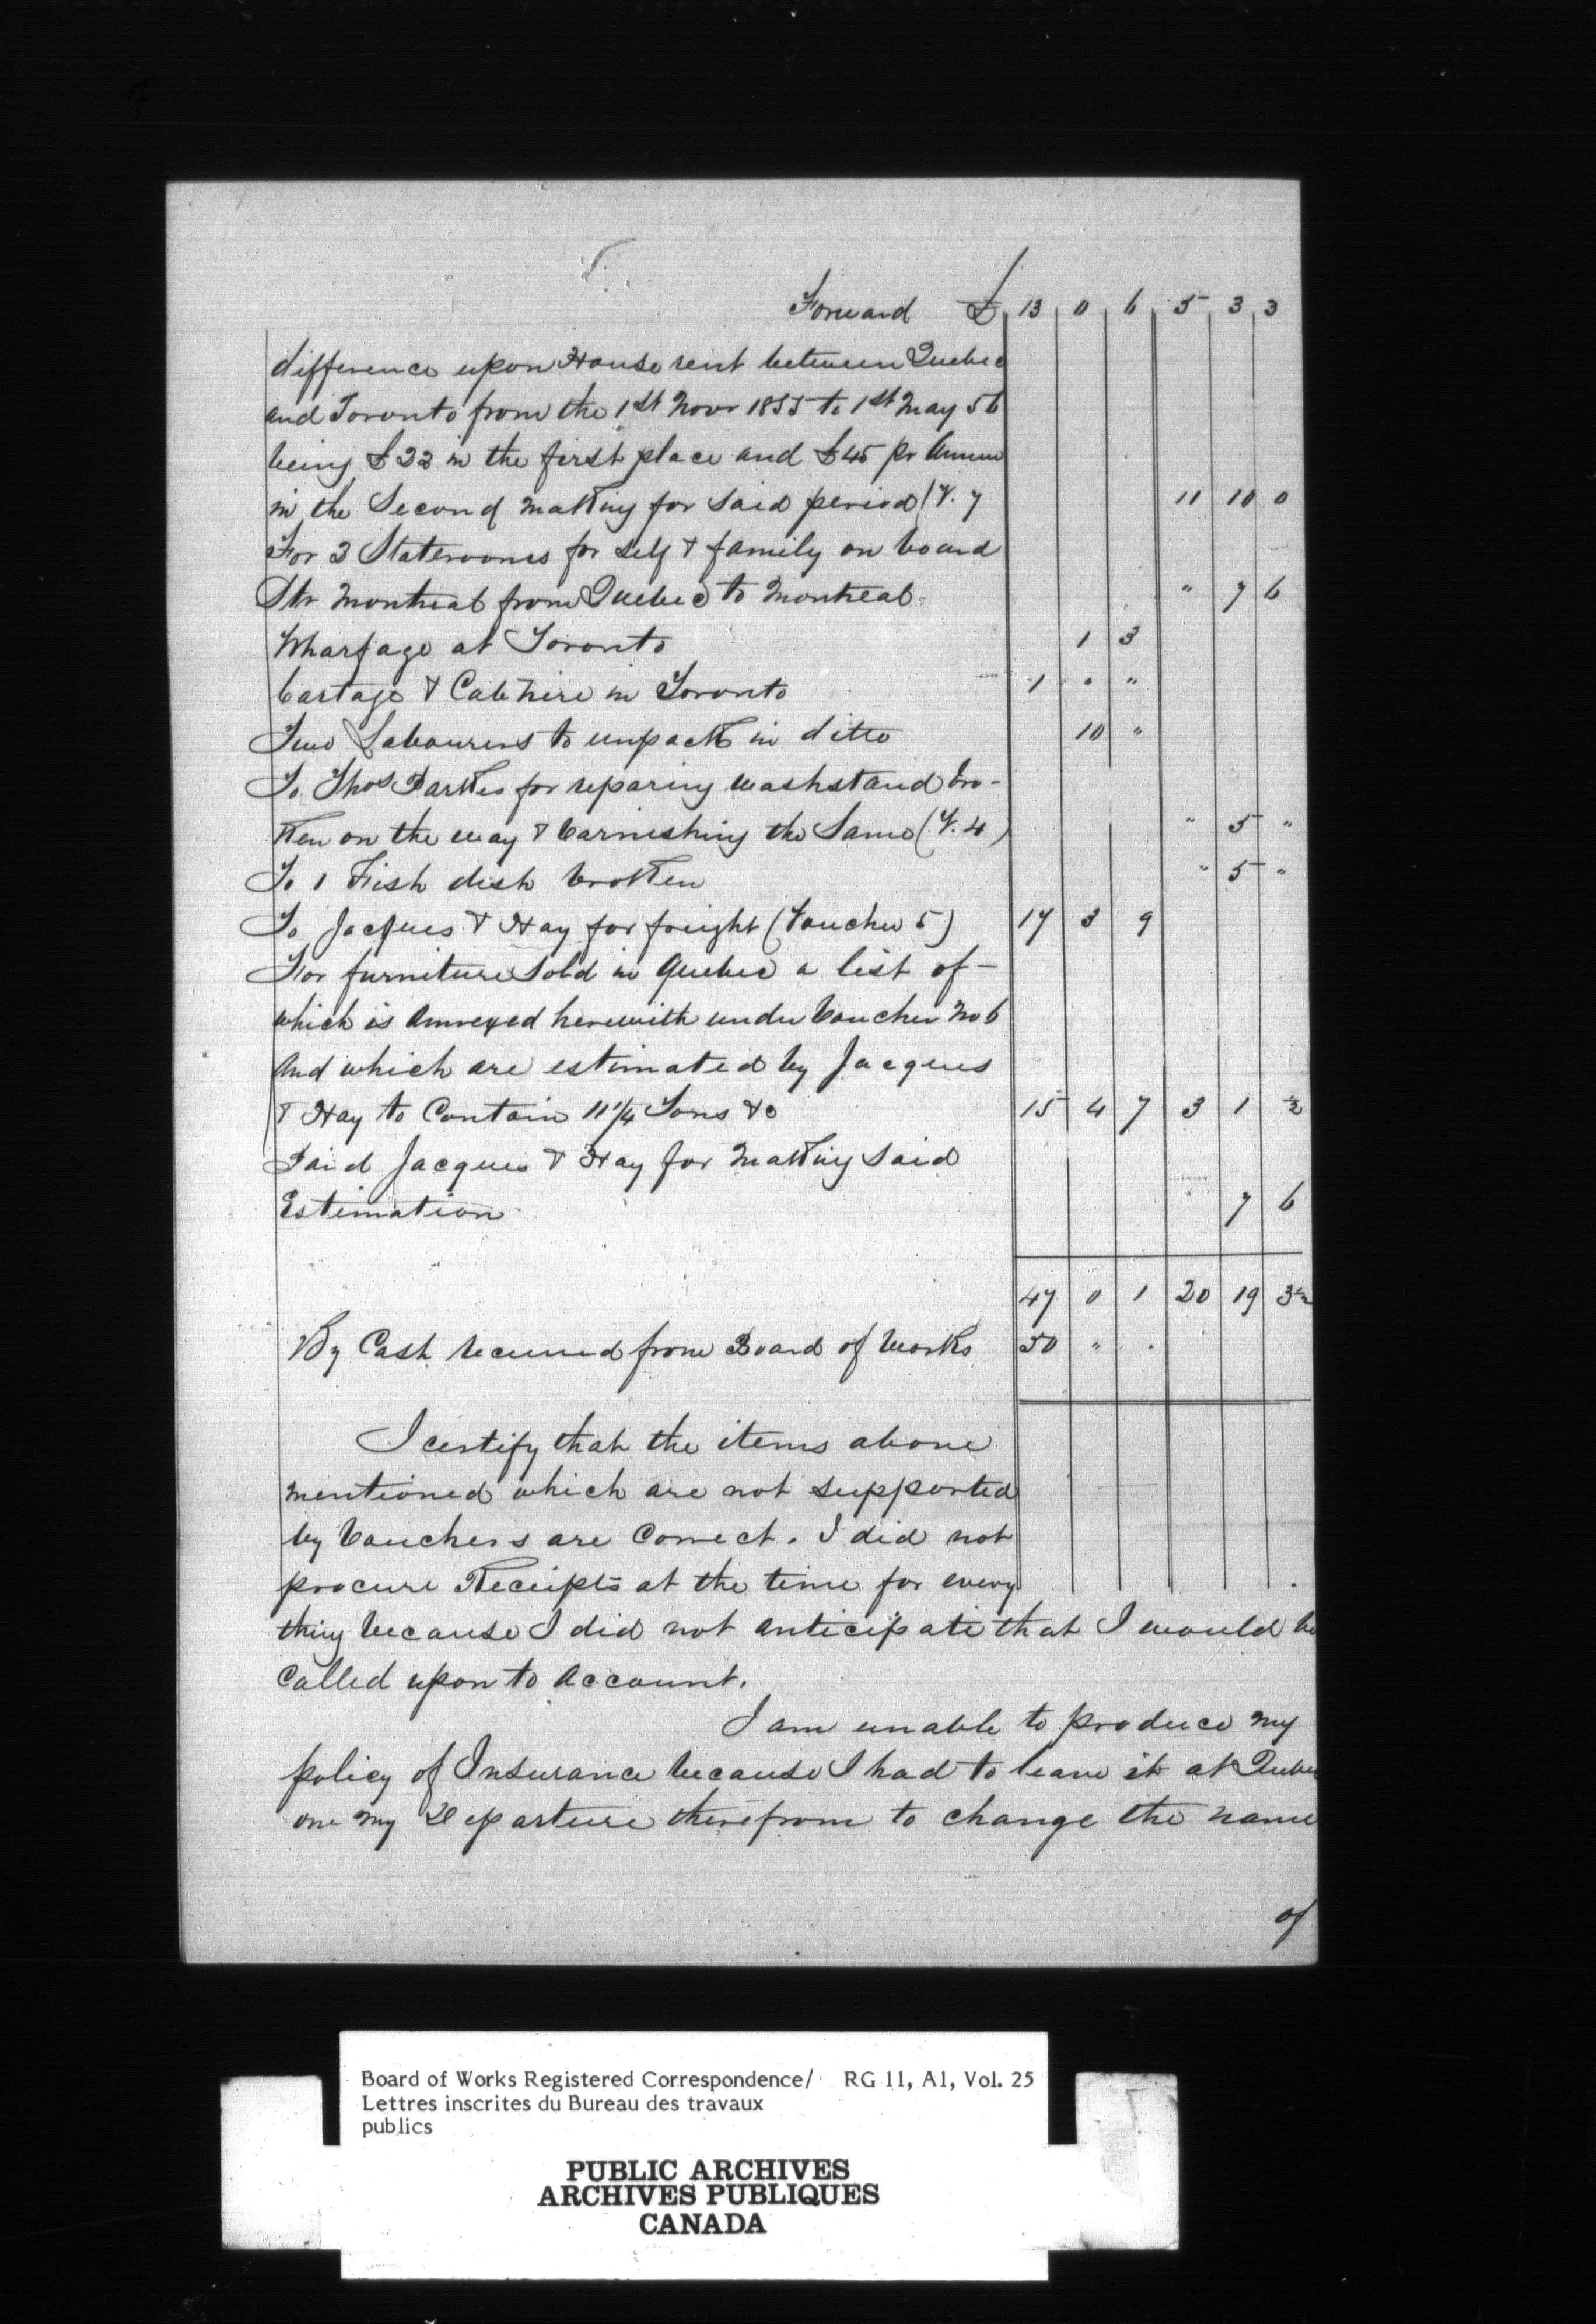 Forward £ 13 0 6 5 3 3
difference upon House rent between Quebec
and Toronto from the 1st Novr 1855 to 1st May 56
being £22 in the first place and £45 pr Annum
in the Second making for said period (V. 7 11 10 0
For 3 Staterooms for self & family on board
Str Montreal from Quebec to Montreal " 7 6
Wharfage at Toronto 1 3
Cartage & Cab hire in Toronto 1 " "
Two Labourers to unpack in ditto 10 "
To Thos Parkes for reparing washstand bro-
ken on the way & varnishing the Same (V. 4) " 5 "
To 1 Fish dish broken " 5 "
To Jacques & Hay for freight (Voucher 5) 17 3 9
For furniture Sold in Quebec a list of
which is Annexed herewith under Voucher No 6
And which are estimated by Jacques
& Hay to Contain 11 1/4 Tons &c 15 4 7 3 1 ½
Paid Jacques & Hay for Making Said
Estimation 7 6
47 0 1 20 19 3½
By Cash received from Board of Works 50 " "
I certify that the items above
mentioned which are not supported
by Vouchers are Correct. I did not
procure Receipts at the time for every
thing because I did not anticipate that I would be
Called upon to Account.
I am unable to produce my
policy of Insurance because I had to leave it at Quebec
one my Departure therefrom to change the name
of
Board of Works Registered Correspondence/ RG 11, A1, Vol. 25
Lettres inscrites du Bureau des travaux
publics
PUBLIC ARCHIVES
ARCHIVES PUBLIQUES
CANADA